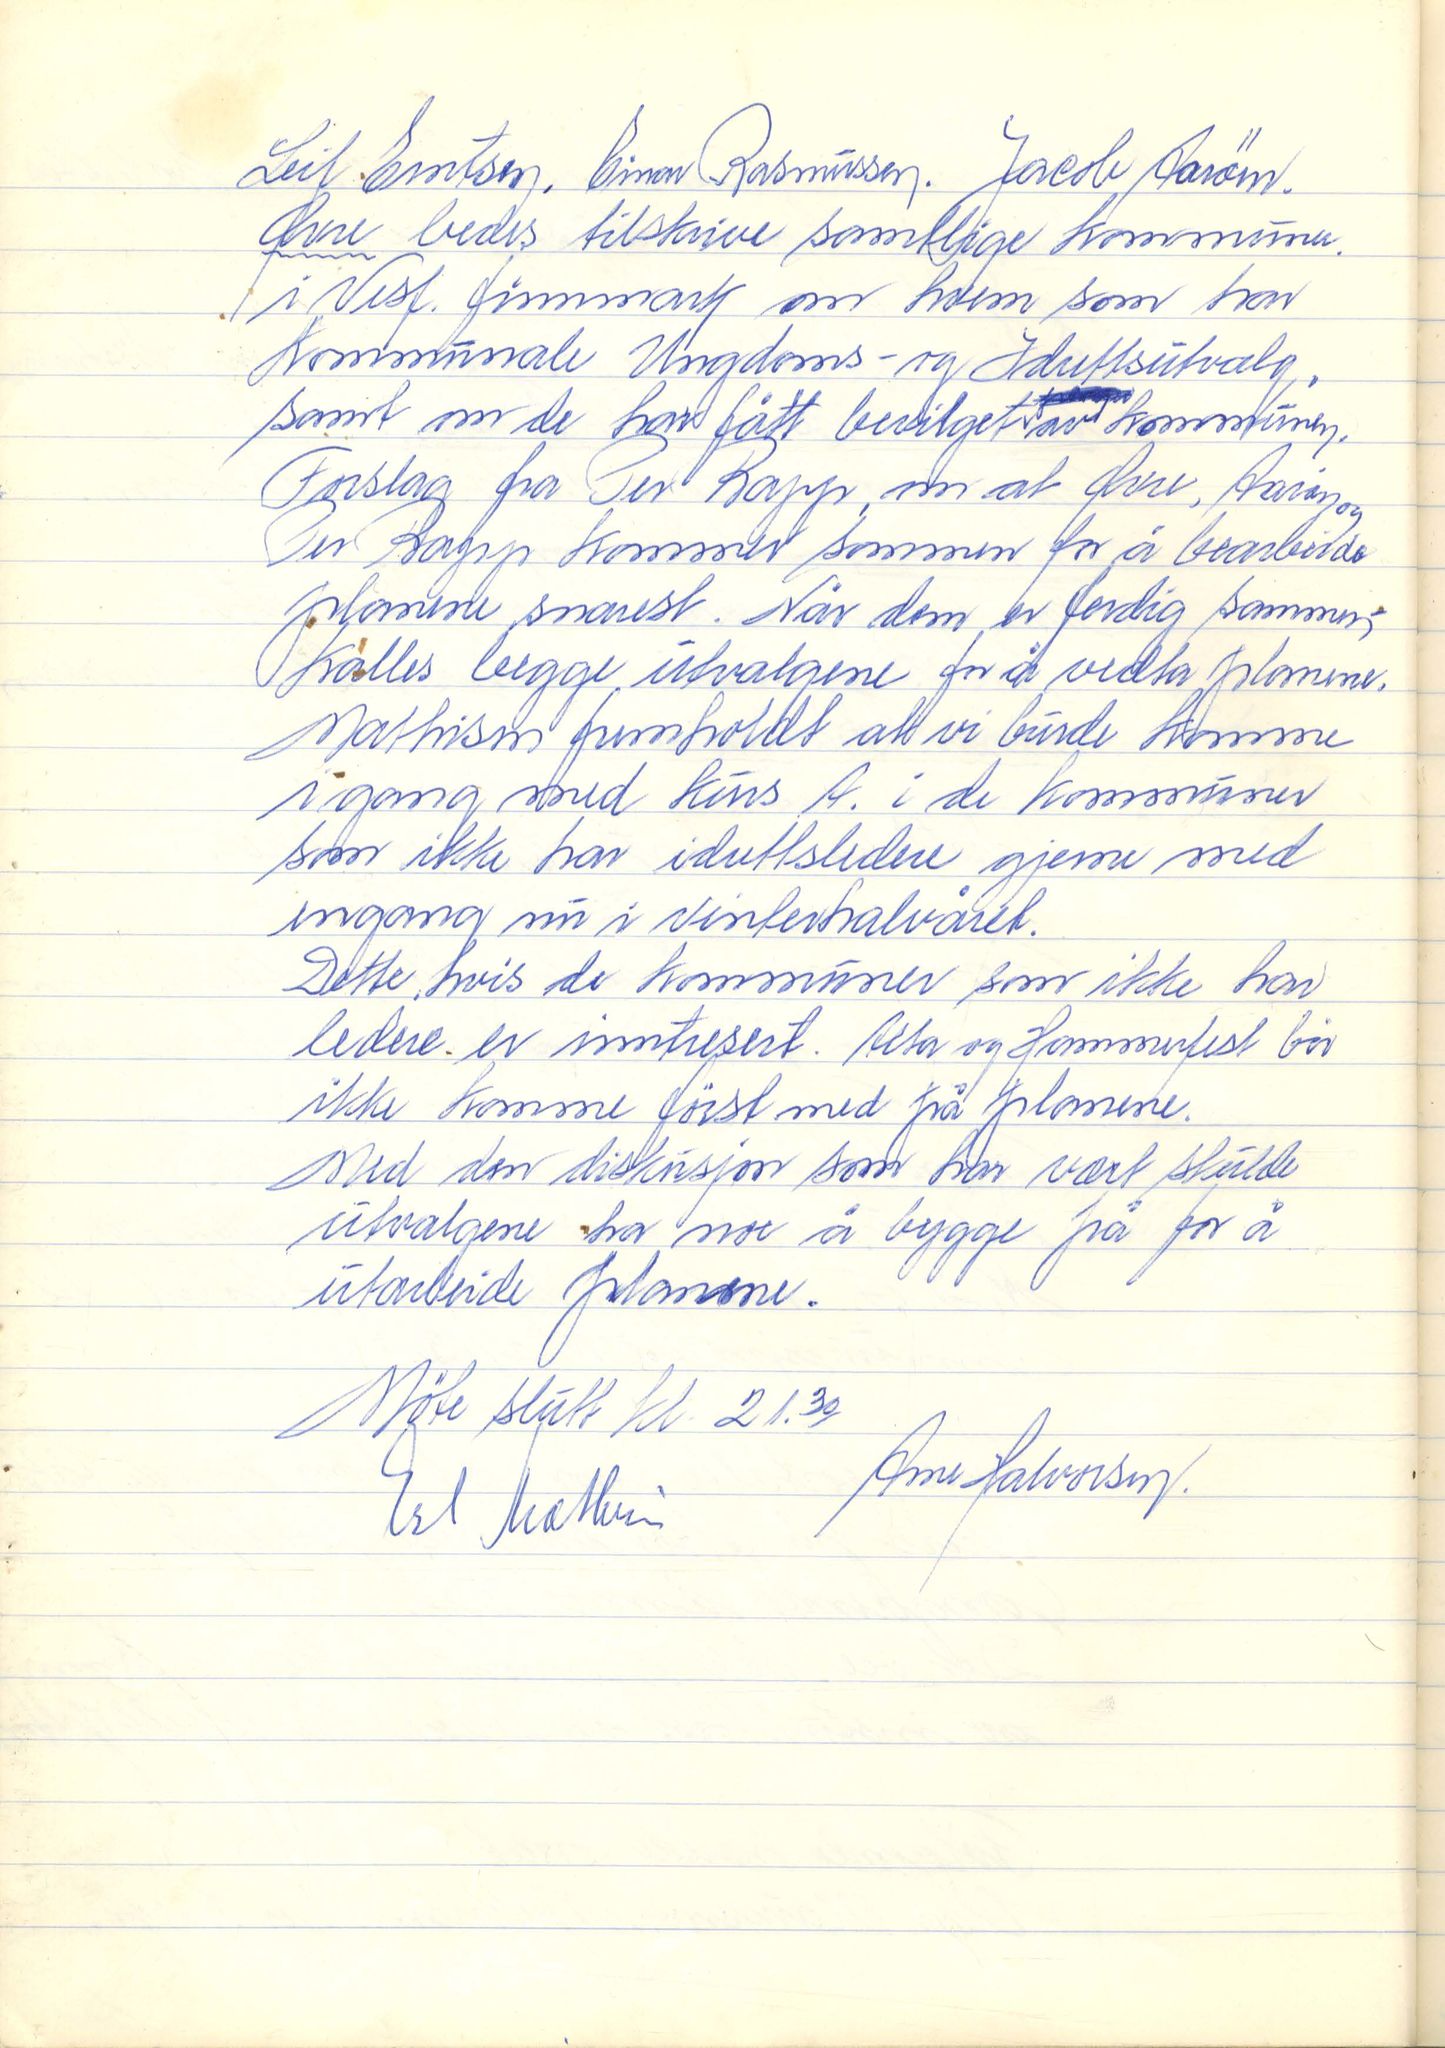 Leif Erntsen. Einar Rasmussen. Jacob Aarøen.
Øvre bedes tilskrive samtlige kommuner.
i Vest. finnmark om hvem som har
Kommunale Ungdoms- og Idrettsutvalg,
samt om de har fått bevilget av kommunen.
Forslag fra Per Rapp, om at Øvre, Aarøn og
Per Rapp kommer sammen for å bearbeide
planene snarest. Når dem er ferdig sammen-
kalles begge utvalgene for å vedta planene.
Mathisen fremholdt at vi burde komme
i gang med kurs A. i de kommuner
som ikke har idrettsledere gjerne med
engang nu i vinterhalvåret.
Dette, hvis de kommuner som ikke har
ledere. er inntresert. Alta og Hammerfest bør
ikke komme först med på planene.
Med den diskusjon som har vært skulde
utvalgene ha noe å bygge på for å
utarbeide planene.
Möte slutt kl. 21.30
Arne Halvorsen.